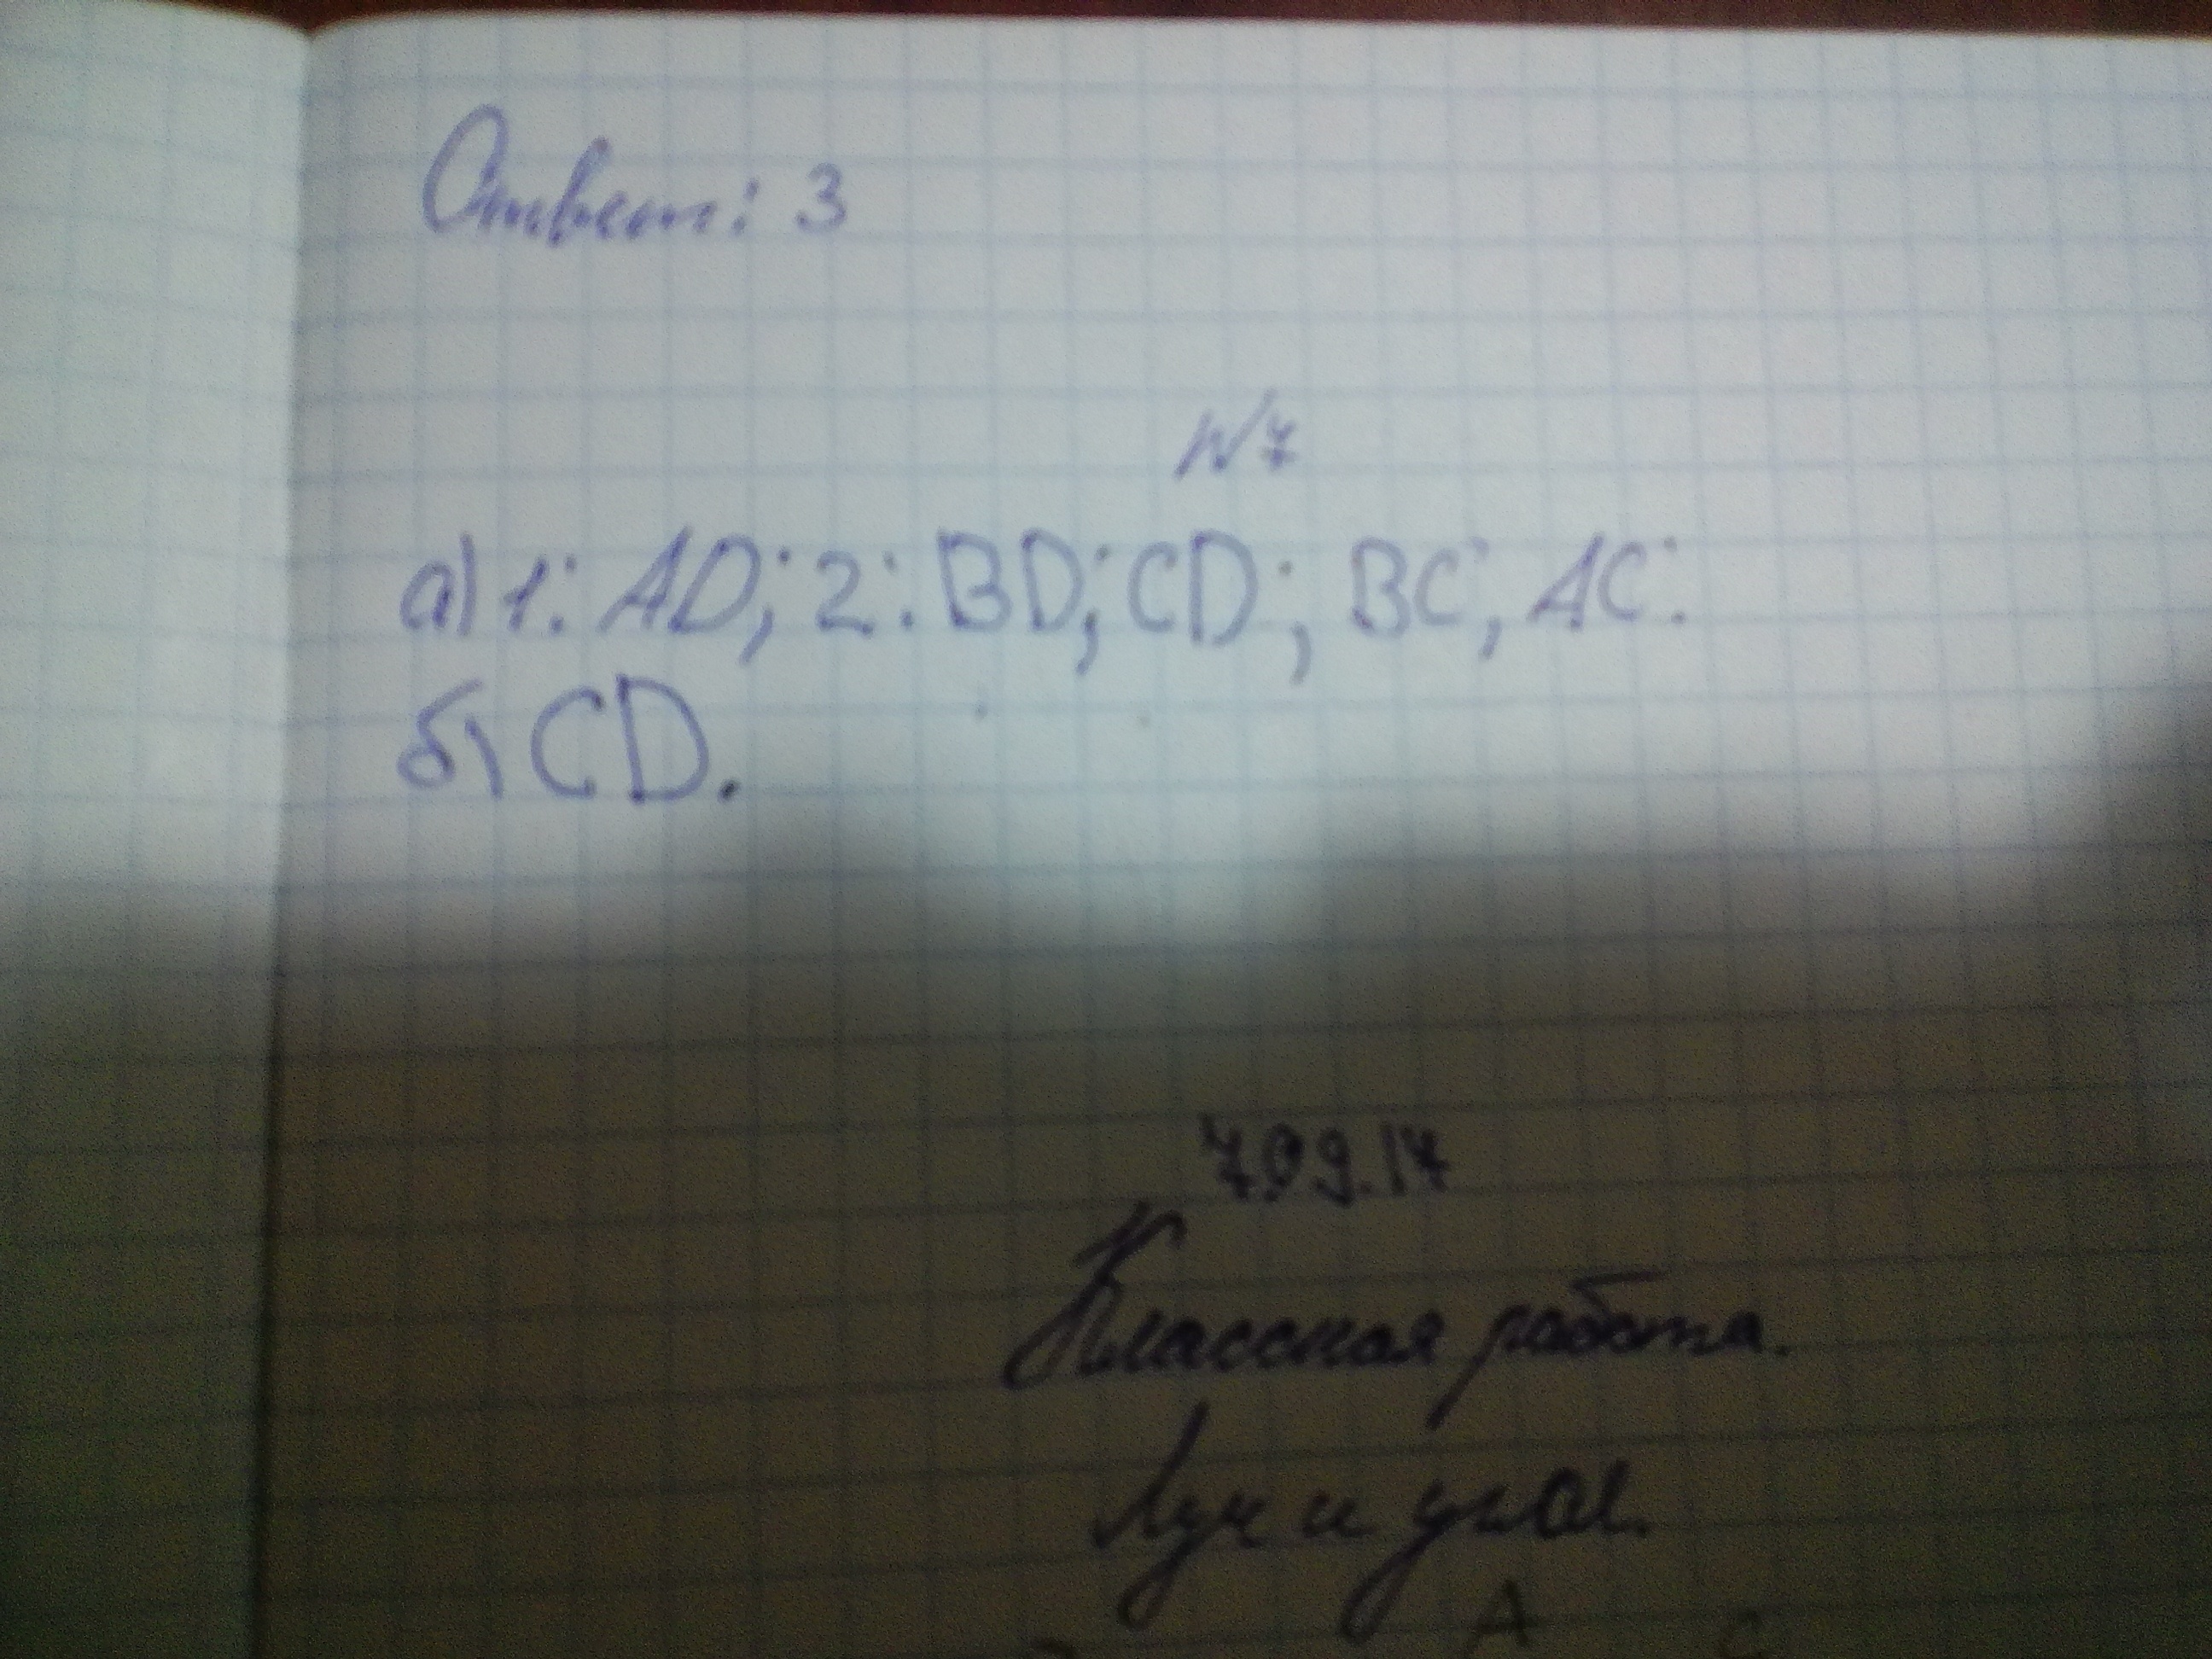 Ответ: 3
№7
а) 1: AD; 2: BD; CD; BC; AC.
б) CD.
7.09.17
Классная работа.
Луч и угол.
A